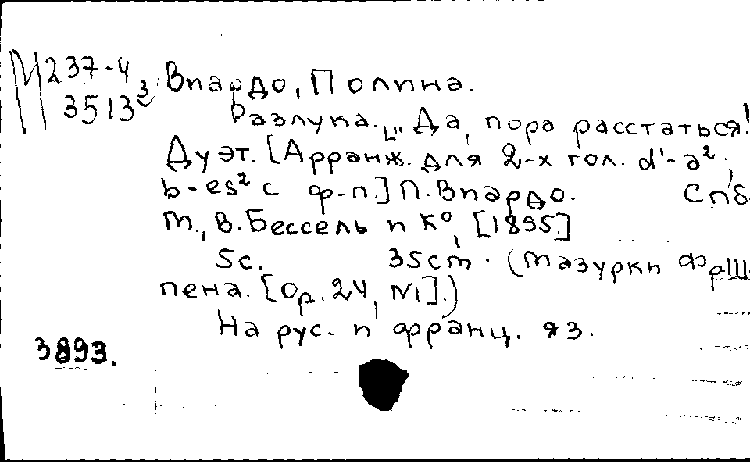 М 237-4 Виардо, Полина.
3513³ Разлука. „Да, пора расстаться!
Дуэт. [Арранж. для 2-х гол. d'-a²,
b-es² с ф-п.] П. Виардо. Спб
М., В. Бессель и К°, [1895]
5с. 35cm. (Мазурки Фр Ш
пена. [Op. 24, N1].)
На рус. и франц. яз.
3893.